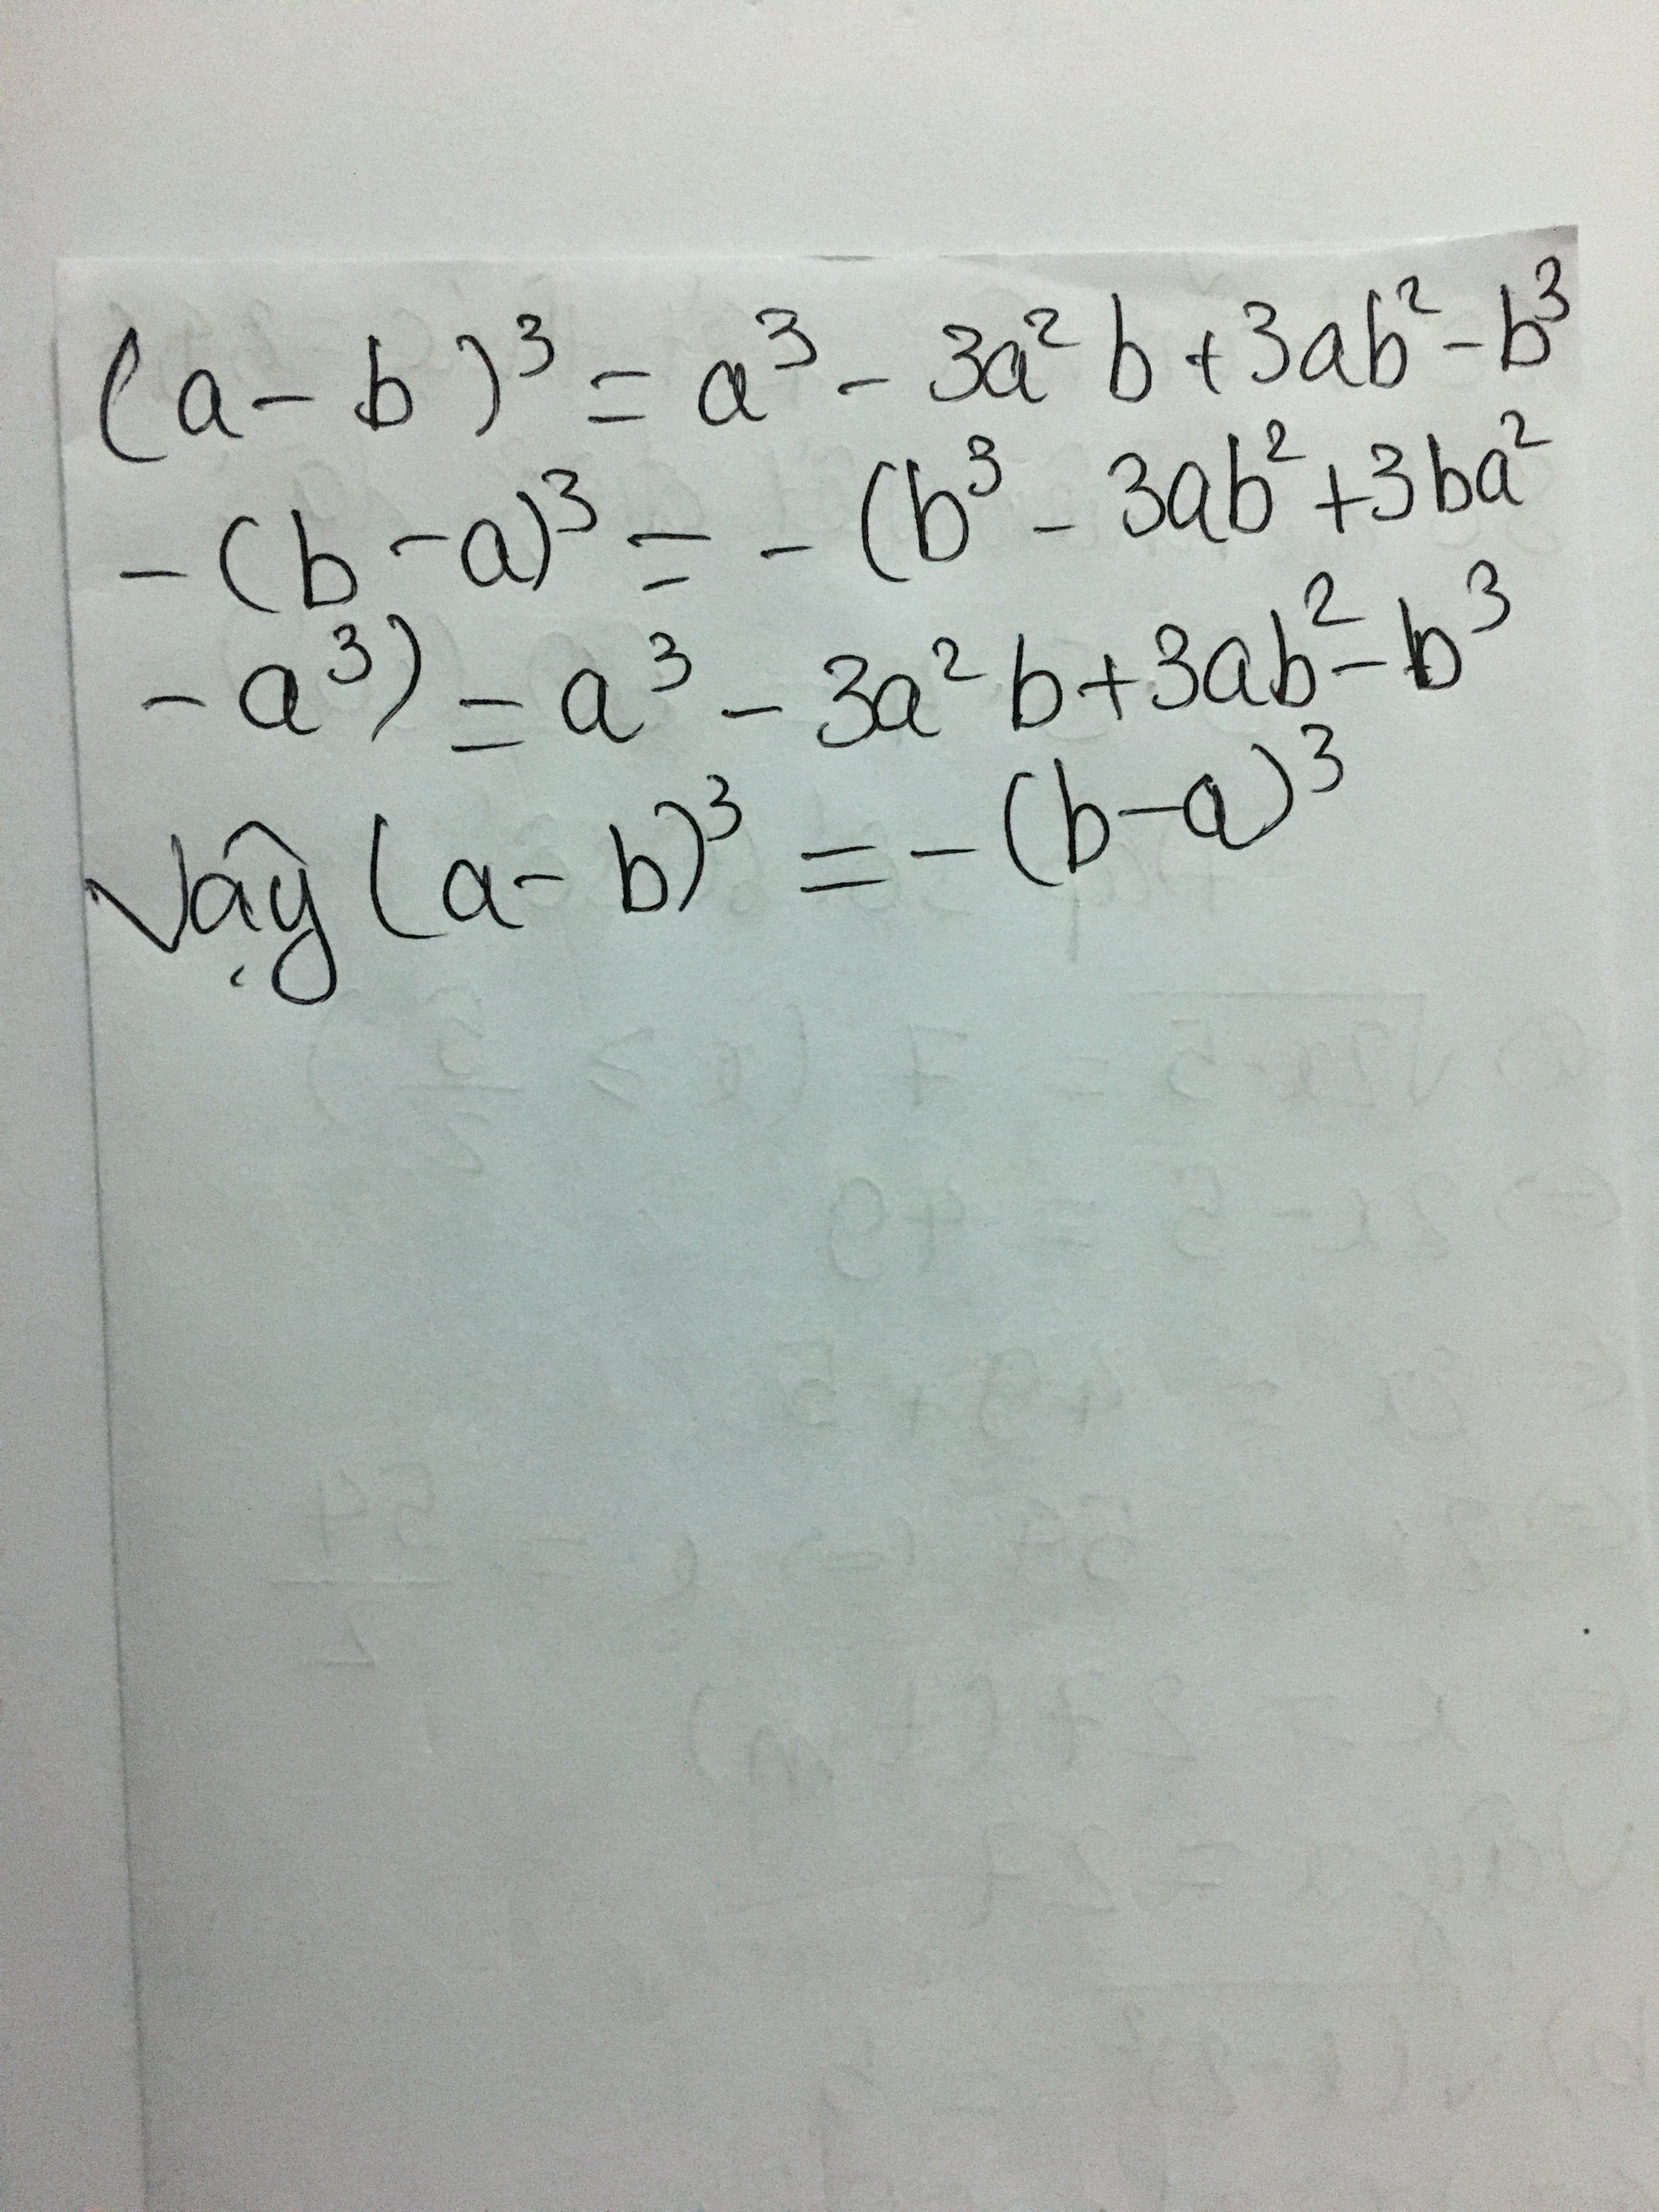 (a - b)³ = a³ - 3a²b + 3ab² - b³
- (b - a)³ = - (b³ - 3ab² + 3ba²
- a³) = a³ - 3a²b + 3ab² - b³
Vậy (a - b)³ = - (b - a)³